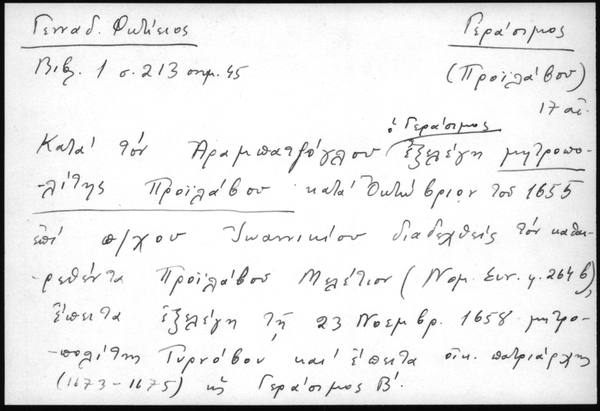 Γενναδ. Φωτίειος
Γεράσιμος
Βιβλ. 1 σ. 213 σημ. 45
(Προϊλάβου)
17 αἰ.
ὁ Γεράσιμος
Κατά τόν Αραμπατζόγλου ἐξελέγη μητροπο-
-λίτης Προϊλάβου κατά Ὀκτώβριον τοῦ 1655
ἐπί π/χου Ἰωαννικίου διαδεχθείς τόν καθαι-
-ρεθέντα Προϊλάβου Μελέτιον (Νομ. Συν. γ. 264 β),
ἔπειτα ἐξελέγη τῇ 23 Νοεμβρ. 1658 μητρο-
-πολίτης Τυρνόβου καί ἔπειτα οἰκ. πατριάρχης
(1673-1675) ὡς Γεράσιμος Β'.